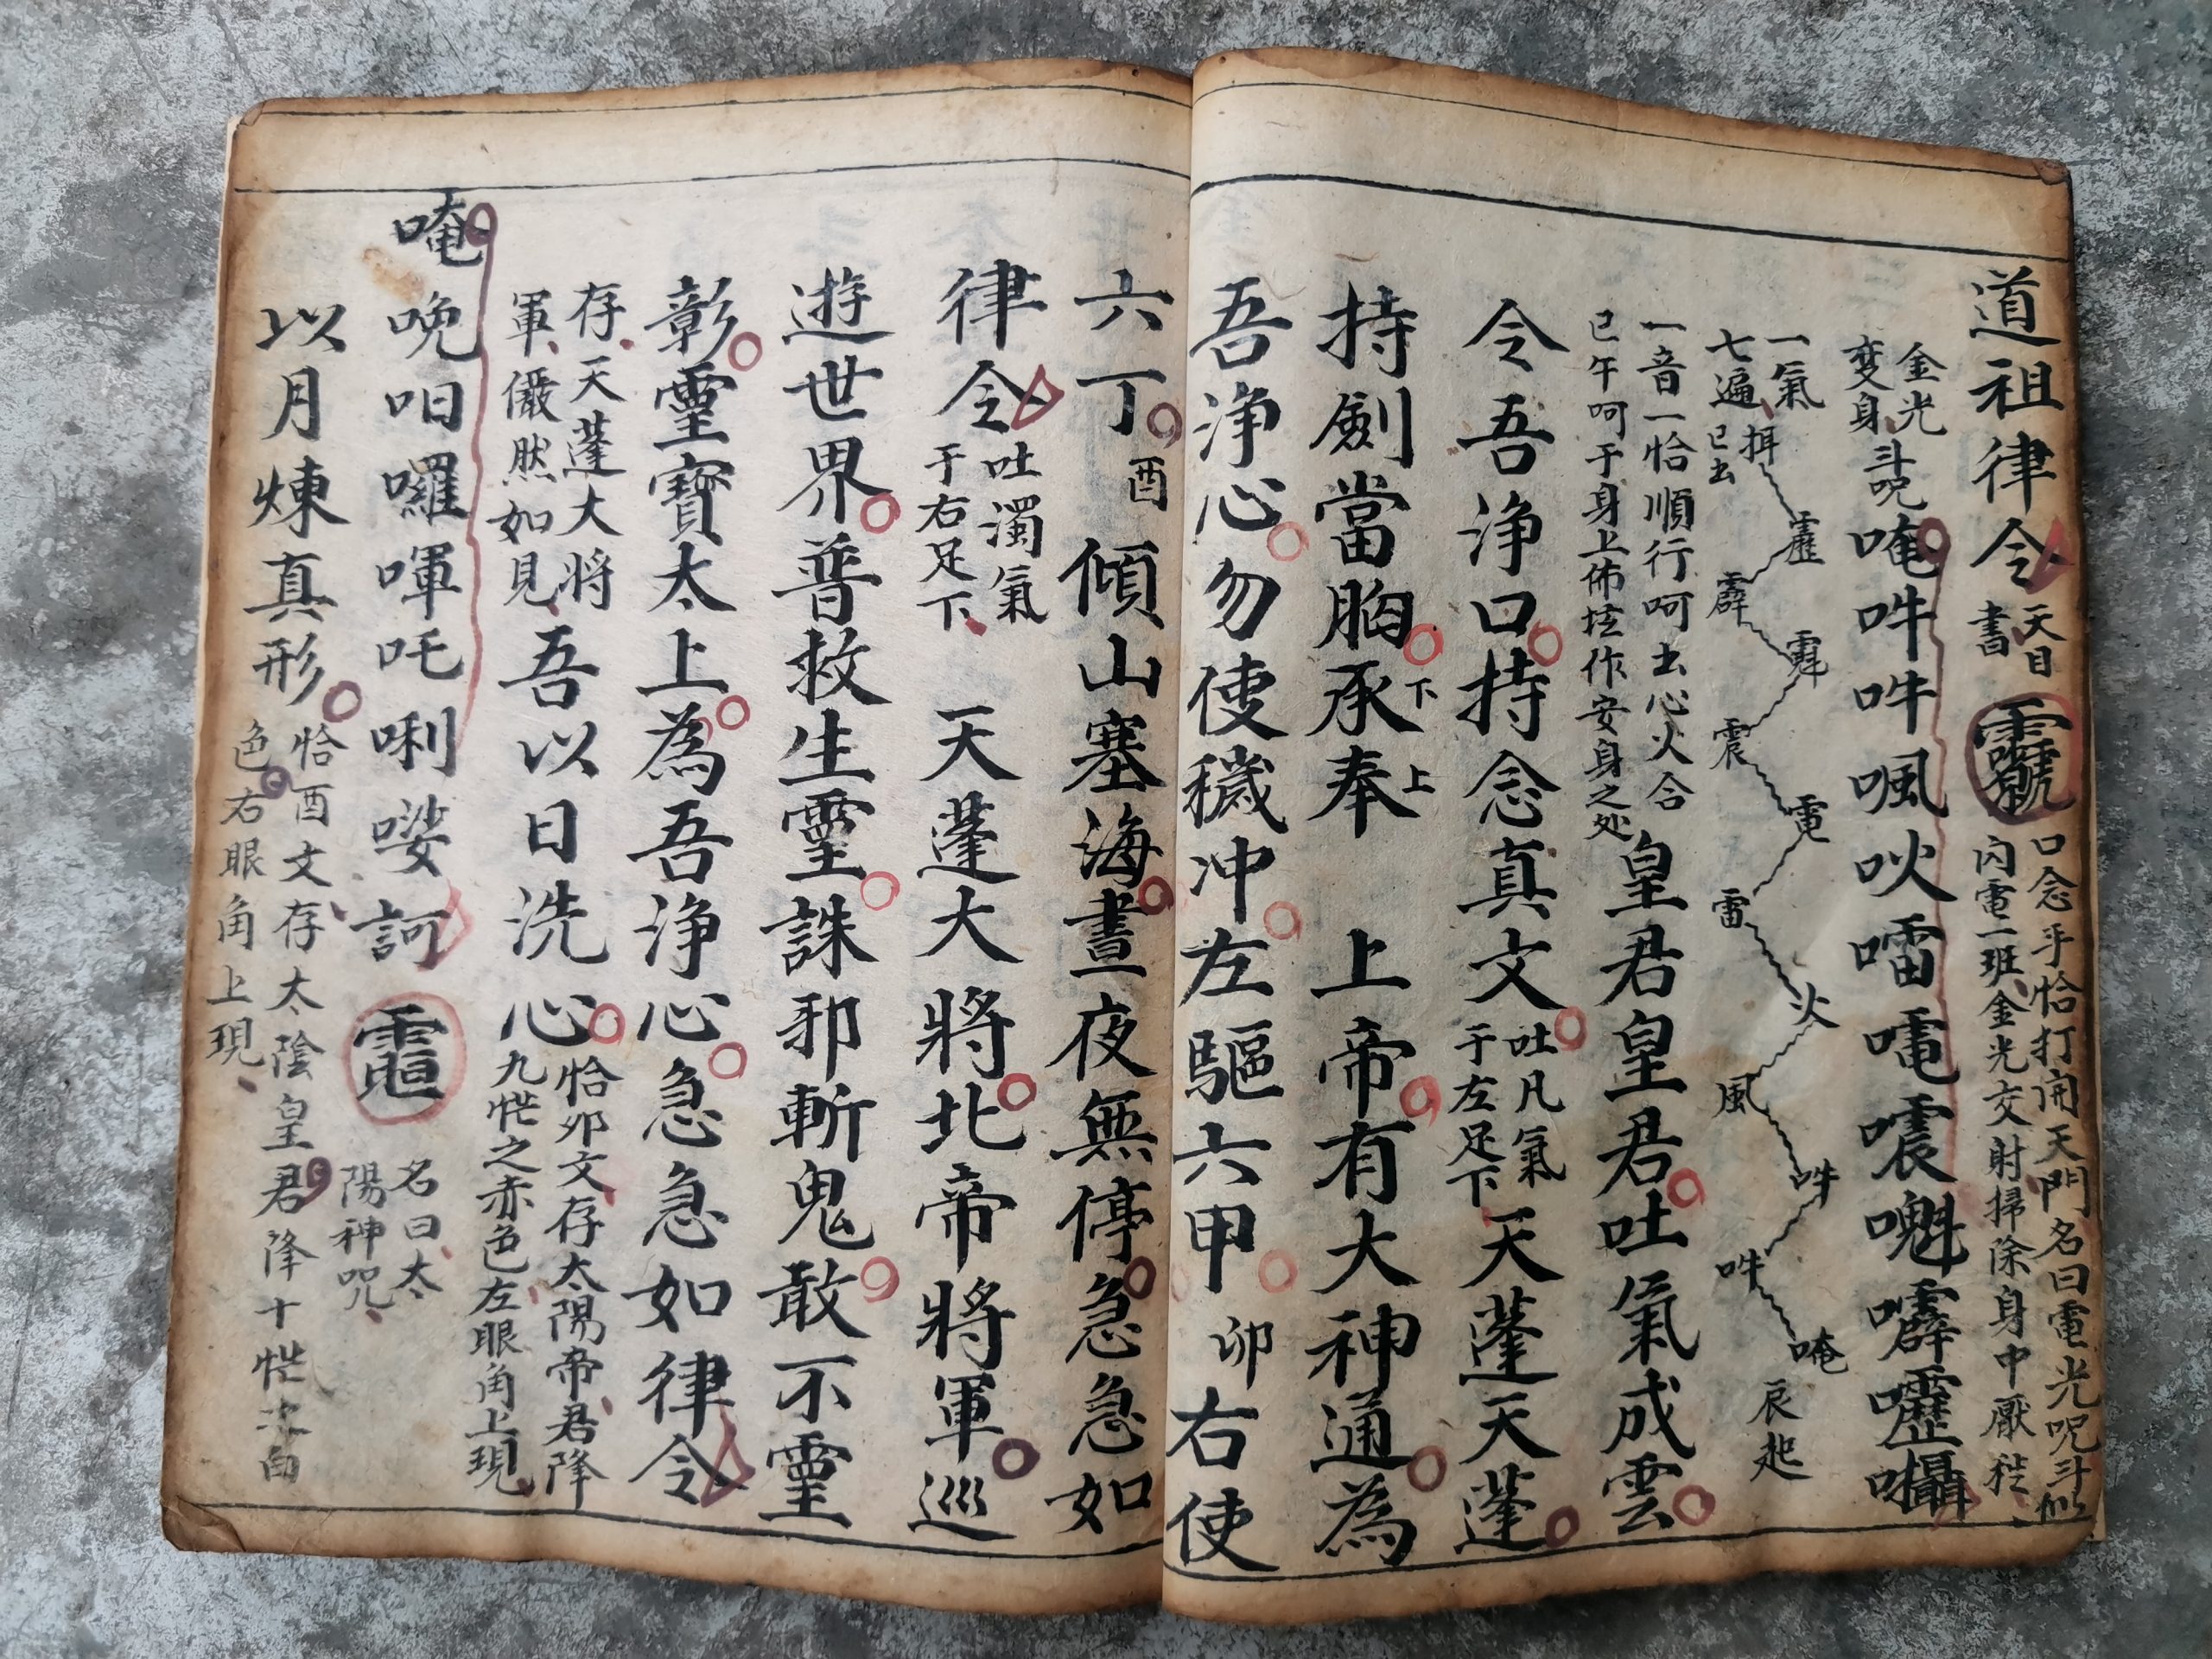 道祖律令
天目
書
口念手恰打開天門名曰電光咒斗似
閃電一班金光交射掃除身中厭穢
金光
変身
斗咒
唵吽吽㕫吙㗊雷電震魁霹靂囁
一氣
七遍
巳去
揖
靂
霹
魁
震
電
雷
火
風
吽
吽
唵
辰起
一音一恰順行呵去心火合
巳午呵于身上佈坛作安身之处
皇君皇君吐氣成雲
令吾淨口持念真文
吐凡氣
于左足下
天蓬天蓬
持劍當胸承奉
下
上
上帝有大神通為
吾淨心勿使穢冲左驅六甲
卯
右使
六丁
酉
傾山塞海晝夜無停急急如
律令
吐濁氣
于右足下
天蓬大將北帝將軍巡
遊世界普救生靈誅邪斬鬼敢不靈
彰靈寶太上為吾淨心急急如律令
存天蓬大將
軍儼然如見
吾以日洗心
恰夘文存太陽帝君降
九恾之赤色左眼角上現
唵
唍呬囉喗吒唎娑訶
名曰太
陽神咒
以月煉真形
恰酉文存太陰皇君降十恾之白
色右眼角上現